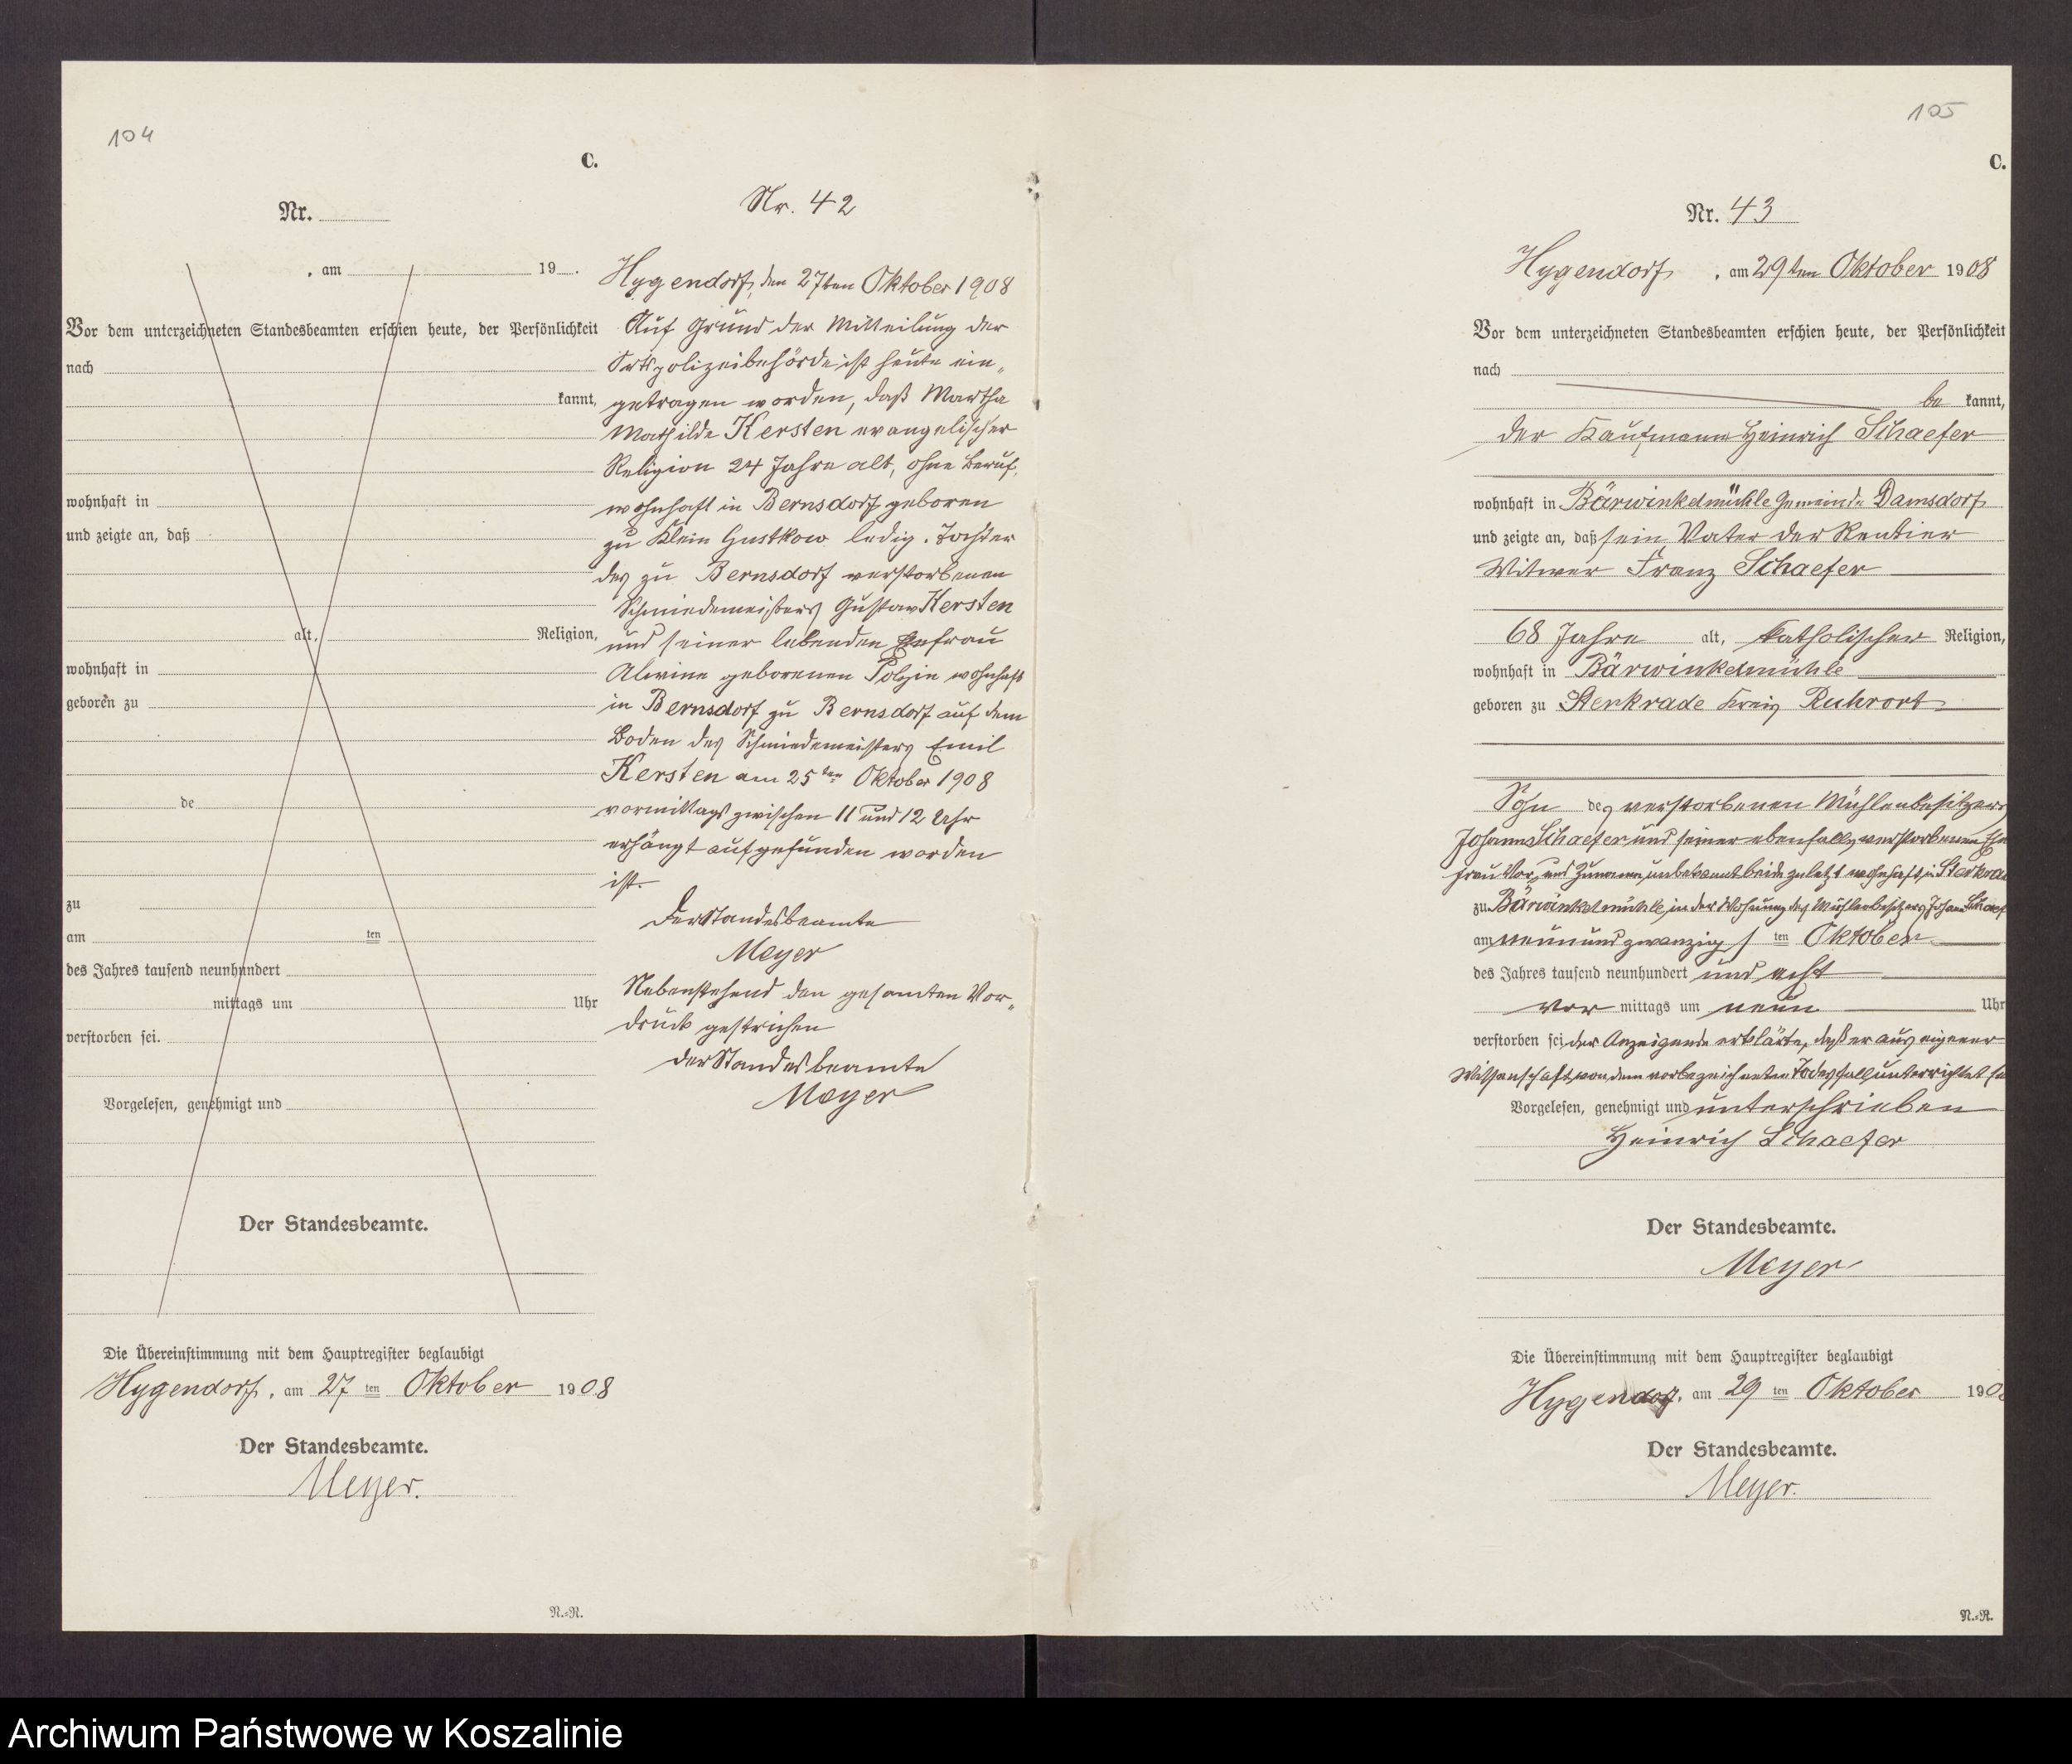 104
C.
Nr.
, am 19 .
Vor dem unterzeichneten Standesbeamten erschien heute, der Persönlichkeit
nach
kannt,
wohnhaft in
und zeigte an, daß
alt, Religion,
wohnhaft in
geboren zu
de
zu
am ten
des Jahres tausend neunhundert
mittags um Uhr
verstorben sei.
Vorgelesen, genehmigt und
Der Standesbeamte.
Die Übereinstimmung mit dem Hauptregister beglaubigt
Hygendorf, am 27 ten Oktober 1908
Der Standesbeamte.
Meyer.
N.-R.
Nr. 42
Hygendorf, den 27ten Oktober 1908
Auf Grund der Mitteilung der
Ortspolizeibehörde ist heute ein„
getragen worden, daß Martha
Mathilde Kersten evangelischer
Religion 24 Jahre alt, ohne Beruf,
wohnhaft in Bernsdorf geboren
zu Klein Gustkow ledig. Tochter
des zu Bernsdorf verstorbenen
Schmiedemeisters Gustav Kersten
und seiner lebenden Ehefrau
Alwine geborenen Polzin wohnhaft
in Bernsdorf zu Bernsdorf auf dem
Boden des Schmiedemeisters Emil
Kersten am 25ten Oktober 1908
vormittags zwischen 11 und 12 Uhr
erhängt aufgefunden worden
ist.
Der Standesbeamte
Meyer
Nebenstehend den gesamten Vor„
druck gestrichen
Der Standesbeamte
Meyer
105
C.
Nr. 43
Hygendorf, am 29ten Oktober 1908
Vor dem unterzeichneten Standesbeamten erschien heute, der Persönlichkeit
nach
be kannt,
der Kaufmann Heinrich Schaefer
wohnhaft in Bärwinkelmühle Gemeinde Damsdorf
und zeigte an, daß sein Vater der Rentier
Witwer Franz Schaefer
68 Jahre alt, katholischer Religion,
wohnhaft in Bärwinkelmühle
geboren zu Sterkrade Kreis Ruhrort
Sohn des verstorbenen Mühlenbesitzers
Johann Schaefer und seiner ebenfalls verstorbenen Ehe
frau Vor„ und Zuname unbekannt beide zuletzt wohnhaft in Sterkra
zu Bärwinkelmühle, in der Wohnung des Mühlenbesitzers Johann Schaef
am neunundzwanzigs ten Oktober
des Jahres tausend neunhundert und acht
vor mittags um neun Uhr
verstorben sei der Anzeigende erklärte, daß er aus eigener
Wissenschaft von dem vorbezeichneten Todesfall unterrichtet se
Vorgelesen, genehmigt und unterschrieben
Heinrich Schaefer
Der Standesbeamte.
Meyer
Die Übereinstimmung mit dem Hauptregister beglaubigt
Hygendorf, am 29 ten Oktober 190
Der Standesbeamte.
Meyer.
N.-R.
Archiwum Państwowe w Koszalinie